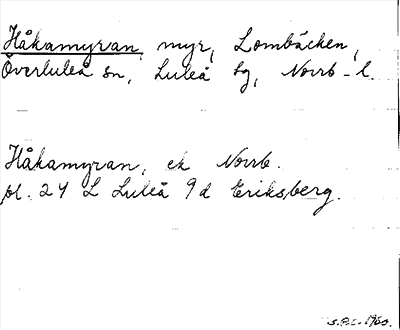 Håkamyran, myr, Lombäcken,
Överluleå sn, Luleå tg, Norrb-l.
Håkamyran, ek Norrb.
pl. 24 L Luleå 9d Eriksberg.